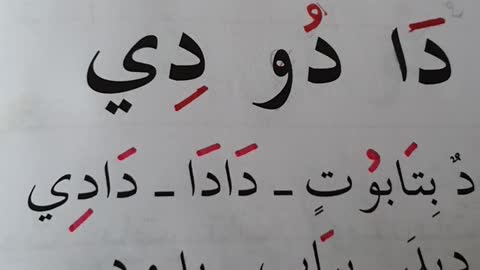 دَا دُو دِي
دٌ بِتَابُوتٍ ـ دَادَا ـ دَادِي